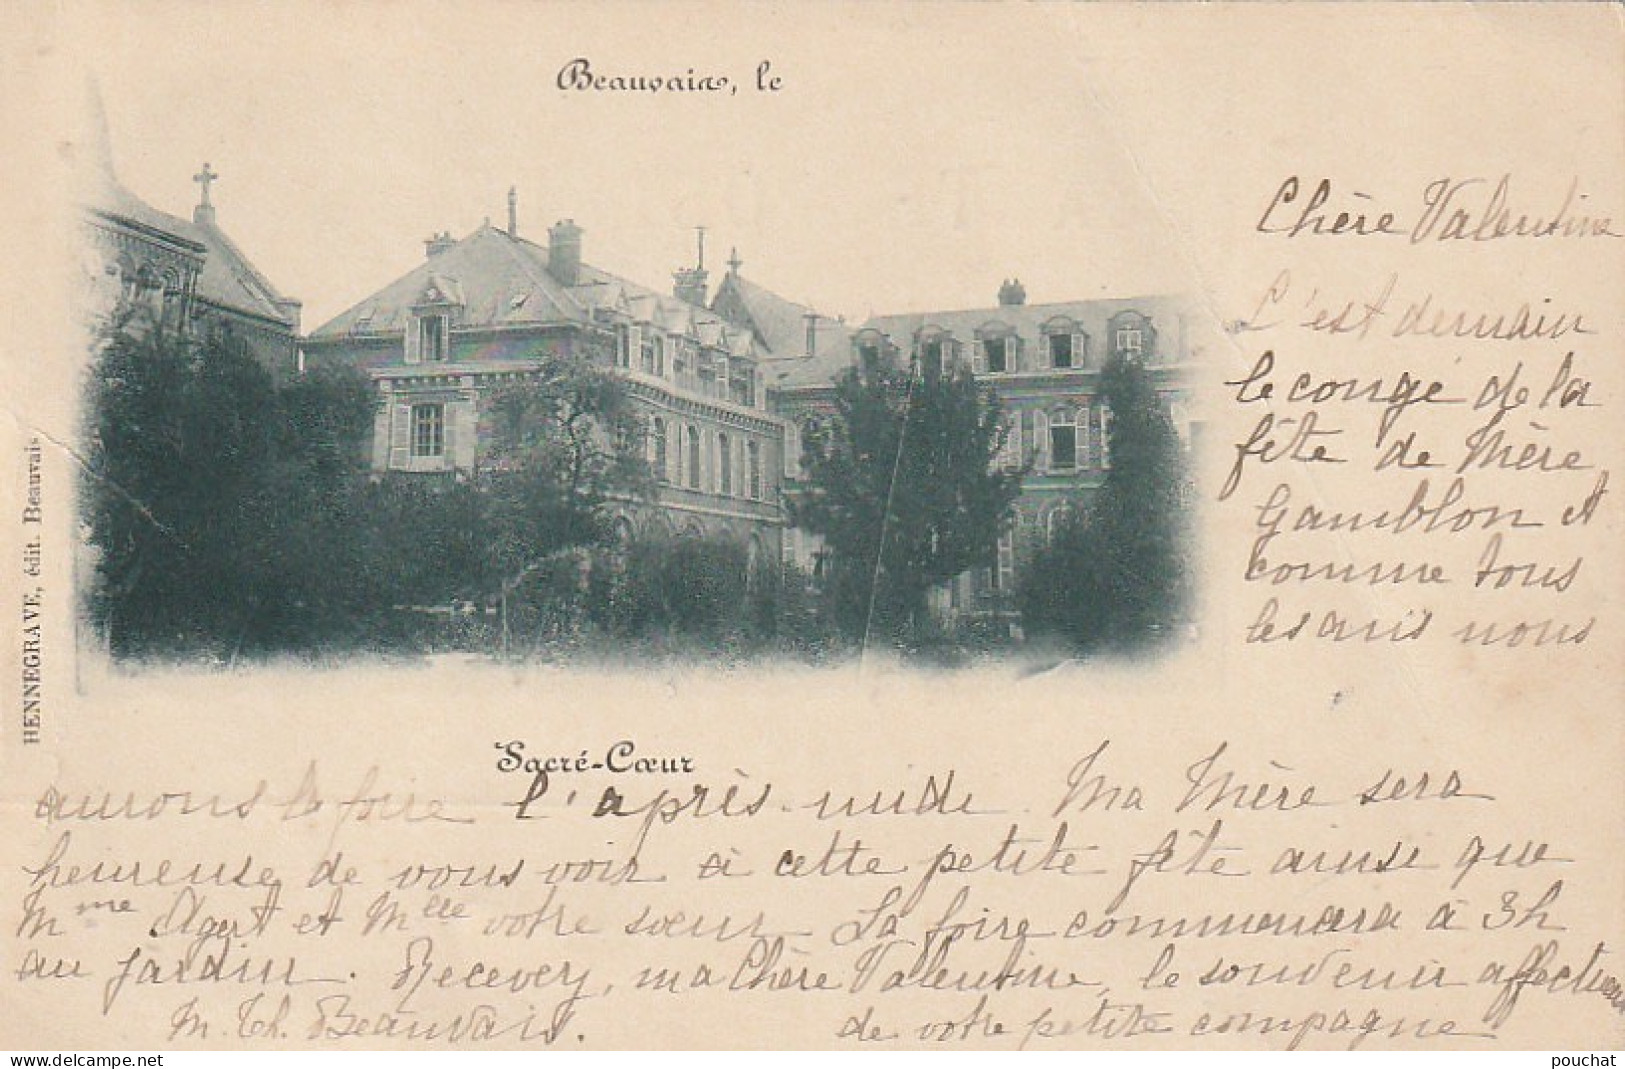 Beauvais, le
Chère Valentine
C'est demain
le congé de la
fête de Mère
Gamblon et
comme tous
les ans nous
HENNEGRAVE, édit. Beauvais
Sacré-Cœur
aurons la foire l'après-midi. Ma Mère sera
heureuse de vous voir à cette petite fête ainsi que
Mme Agert et Mlle votre sœur. La foire commencera à 3h
au jardin. Recevez, ma Chère Valentine, le souvenir affectueux
de votre petite compagne
M. Th. Beauvais.
delcampe.net
pouchat